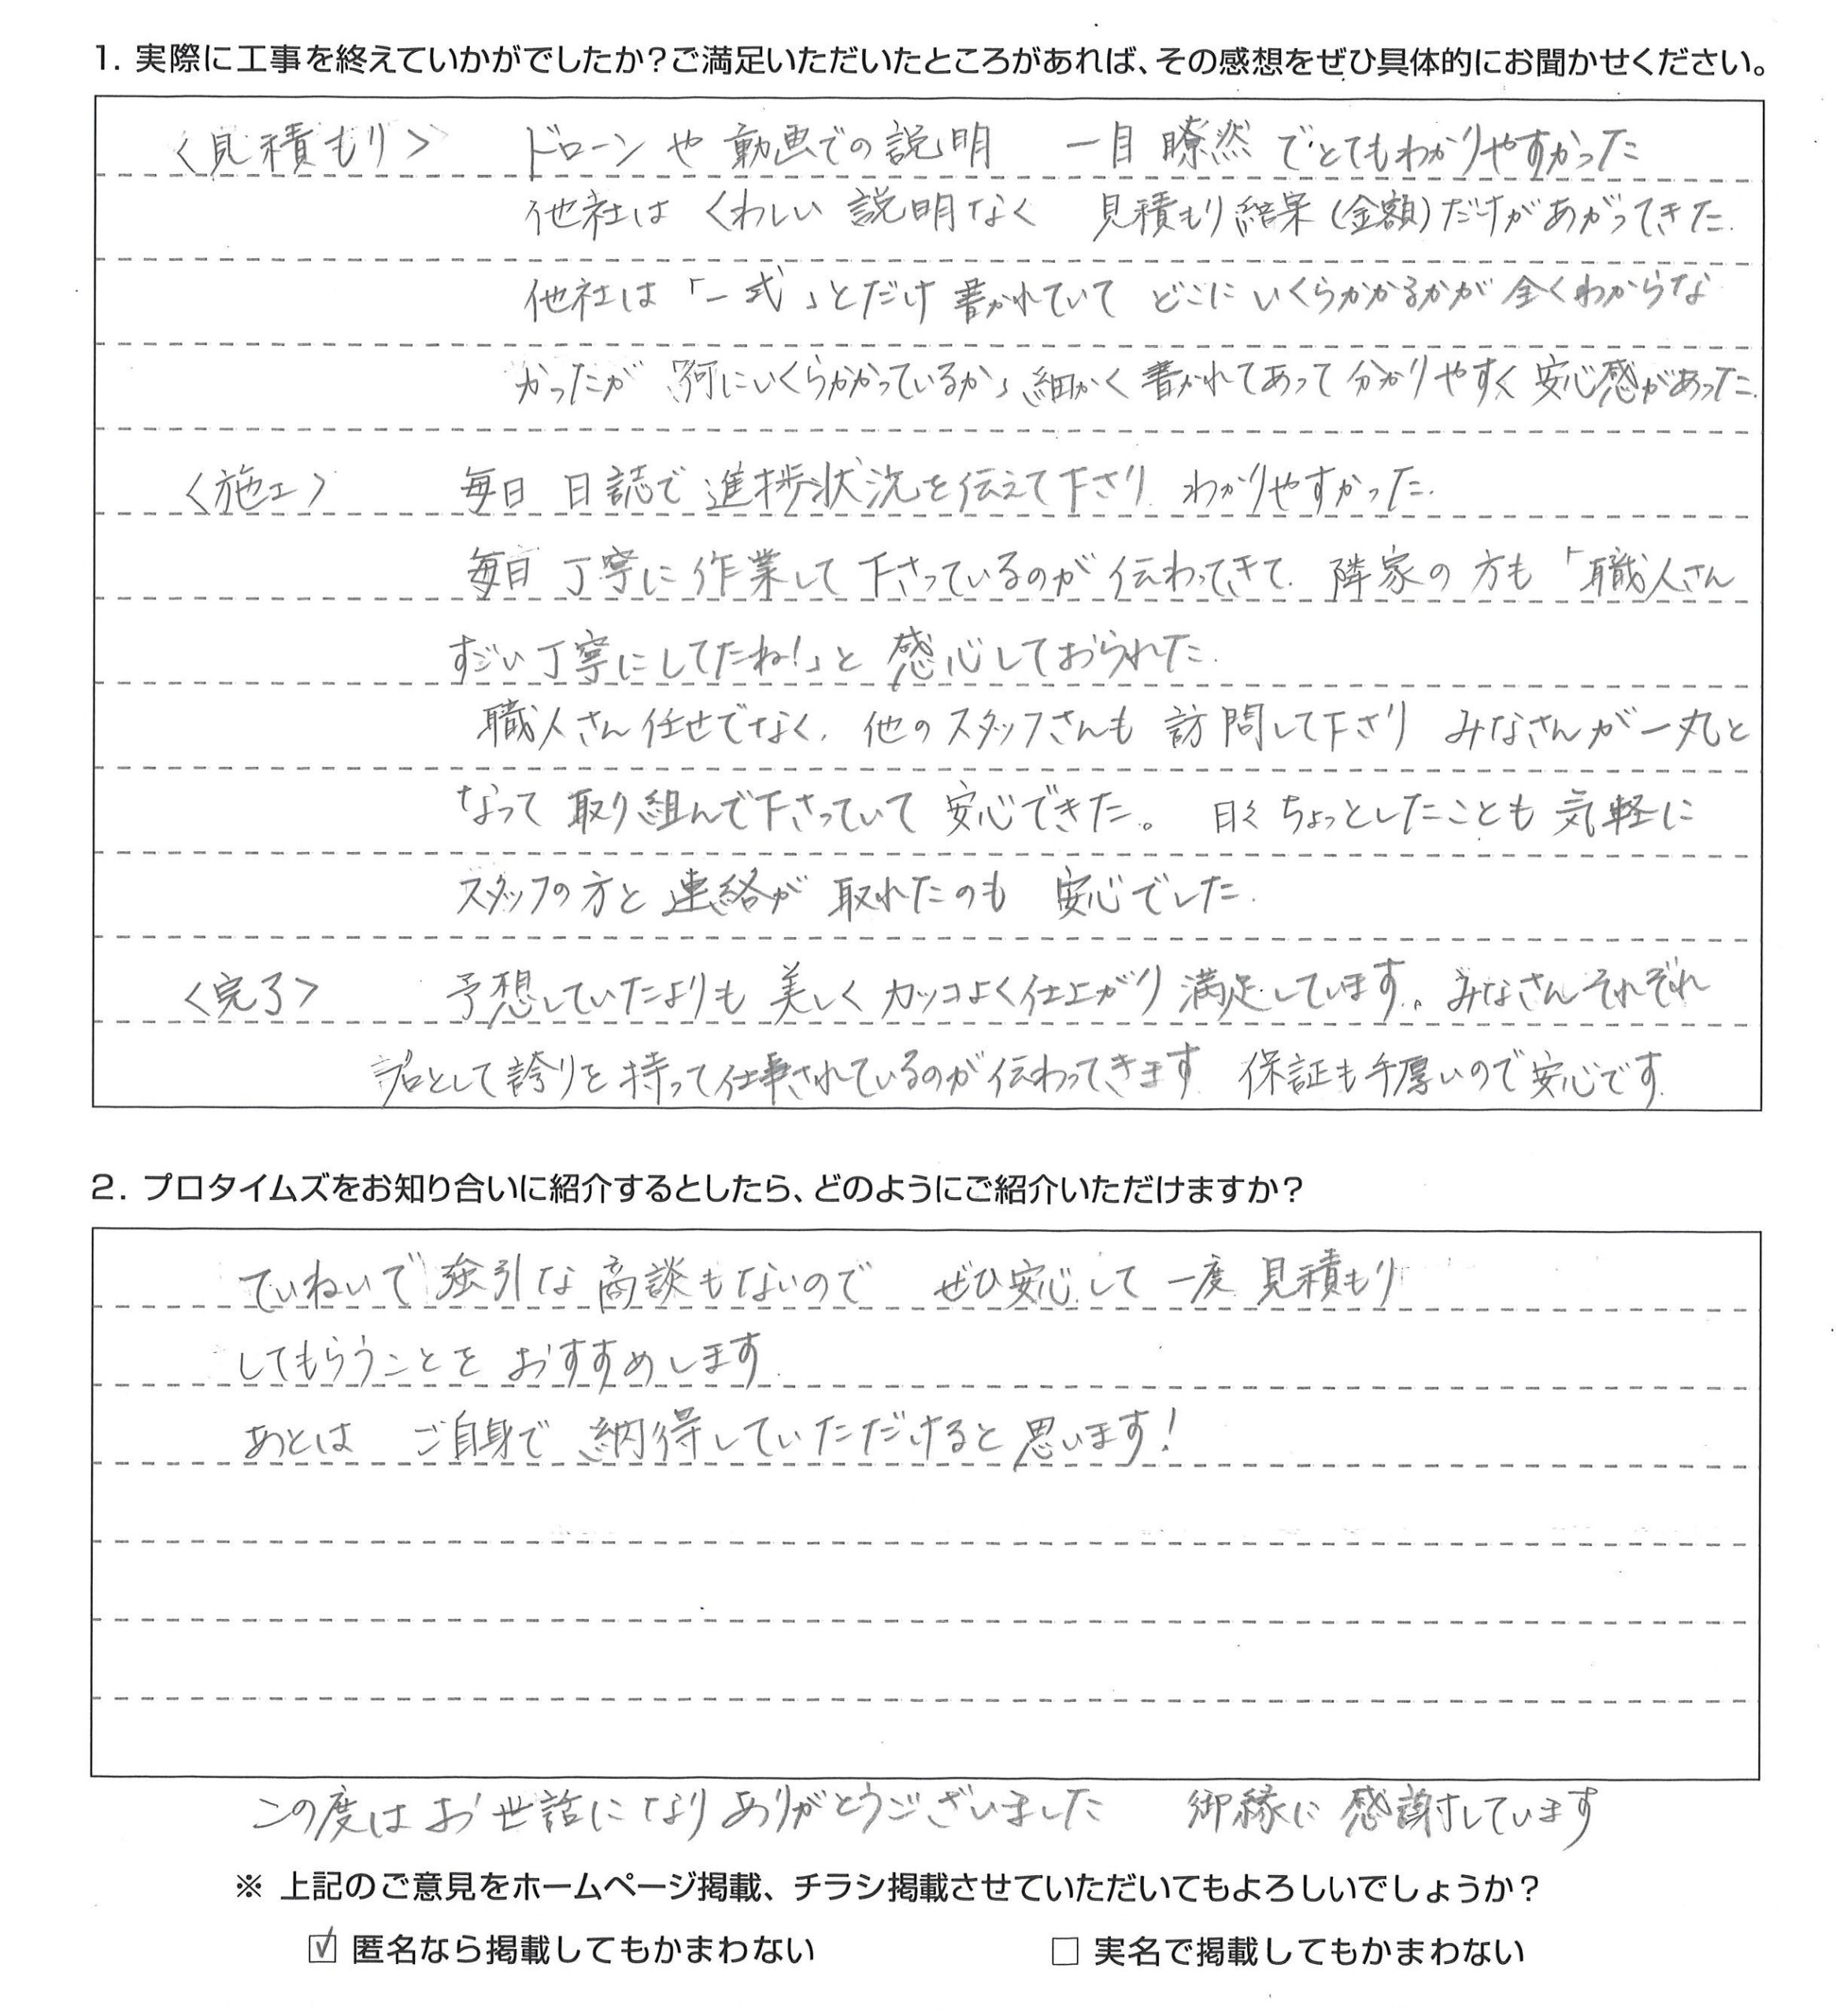 1. 実際に工事を終えていかがでしたか？ご満足いただいたところがあれば、その感想をぜひ具体的にお聞かせください。
〈見積もり〉 ドローンや動画での説明 一目瞭然でとてもわかりやすかった
他社はくわしい説明なく 見積もり結果(金額)だけがあがってきた.
他社は「一式」とだけ書かれていて どこにいくらかかるかが全くわからな
かったが「何にいくらかかっているか」細かく書かれてあって分かりやすく安心感があった.
〈施工〉 毎日 日誌で進捗状況を伝えて下さり わかりやすかった.
毎日 丁寧に作業して下さっているのが伝わってきて. 隣家の方も「職人さん
すごい丁寧にしてたね!」と感心しておられた.
職人さん任せでなく、他のスタッフさんも訪問して下さり みなさんが一丸と
なって取り組んで下さっていて安心できた。 日々ちょっとしたことも気軽に
スタッフの方と連絡が取れたのも 安心でした.
〈完了〉 予想していたよりも美しくカッコよく仕上がり満足しています。みなさんそれぞれ
プロとして誇りを持って仕事されているのが伝わってきます 保証も手厚いので安心です.
2. プロタイムズをお知り合いに紹介するとしたら、どのようにご紹介いただけますか？
ていねいで強引な商談もないので ぜひ安心して一度見積もり
してもらうことをおすすめします.
あとは ご自身で納得していただけると思います!
この度はお世話になりありがとうございました 御縁に感謝しています
※ 上記のご意見をホームページ掲載、チラシ掲載させていただいてもよろしいでしょうか？
☑ 匿名なら掲載してもかまわない □ 実名で掲載してもかまわない